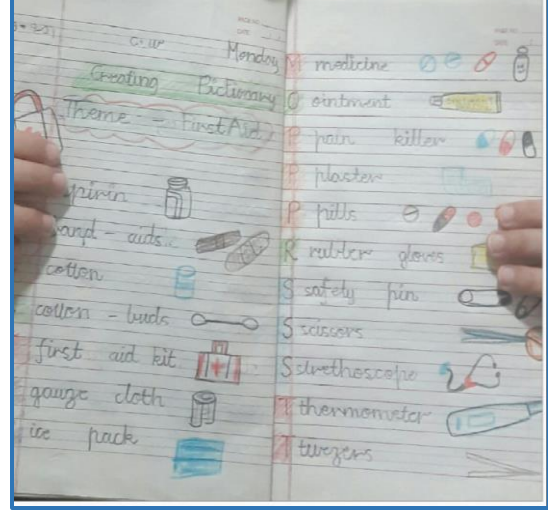 C.W
Monday
Creating Dictionary
Theme - First Aid
spirin
and - aids
cotton
cotton - buds
first aid kit
gauze cloth
ice pack
M medicine
O ointment
P pain killer
P plaster
P pills
R rubber gloves
S safety pin
S scissors
S sthethoscope
T thermometer
T twezers